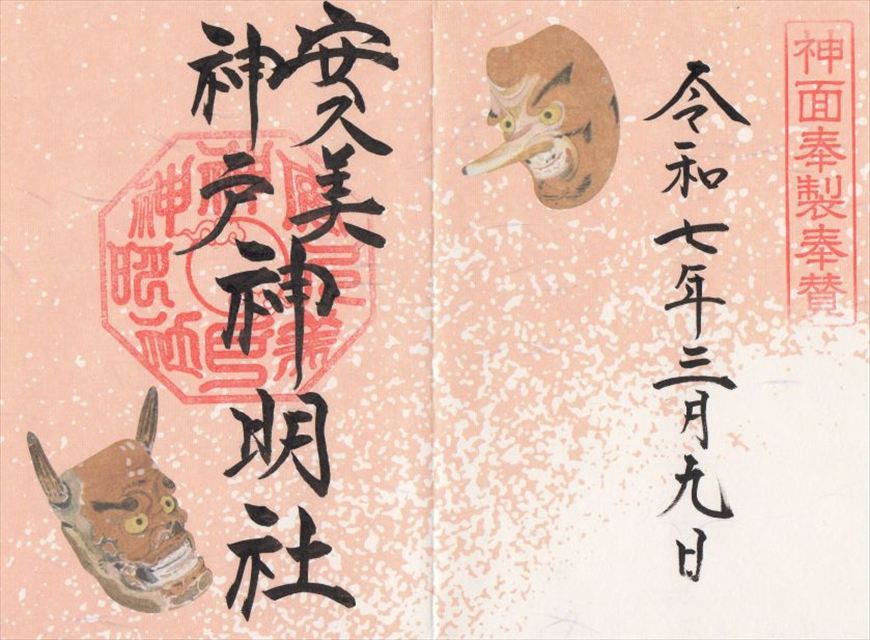 神面奉製奉賛
令和七年三月九日
安久美
神戸
神明社